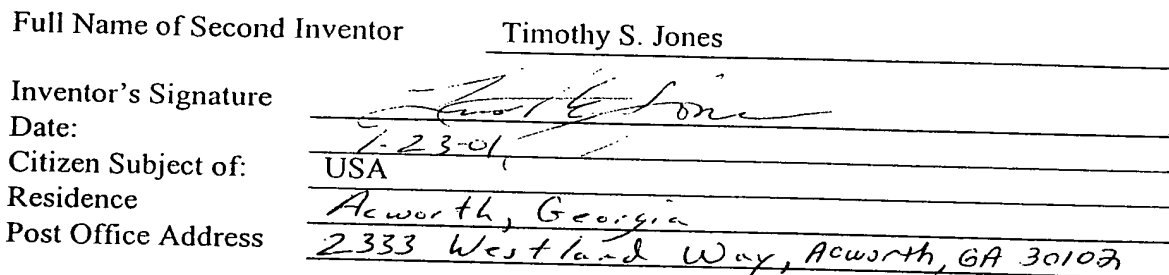 Full Name of Second Inventor Timothy S. Jones
Inventor's Signature
Date: 1-23-01
Citizen Subject of: USA
Residence Acworth, Georgia
Post Office Address 2333 Westland Way, Acworth, GA 30102